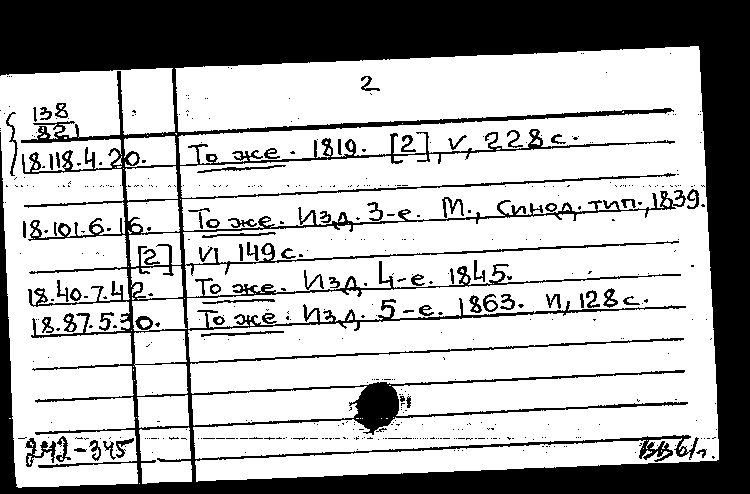 2
138
821
18.118.4.20. То же. 1819. [2], V, 228 с.
18.101.6.16. То же. Изд. 3-е. М., Синод. тип., 1839.
[2], VI, 149 с.
18.40.7.42. То же. Изд. 4-е. 1845.
18.87.5.30. То же. Изд. 5-е. 1863. VI, 128 с.
242-345